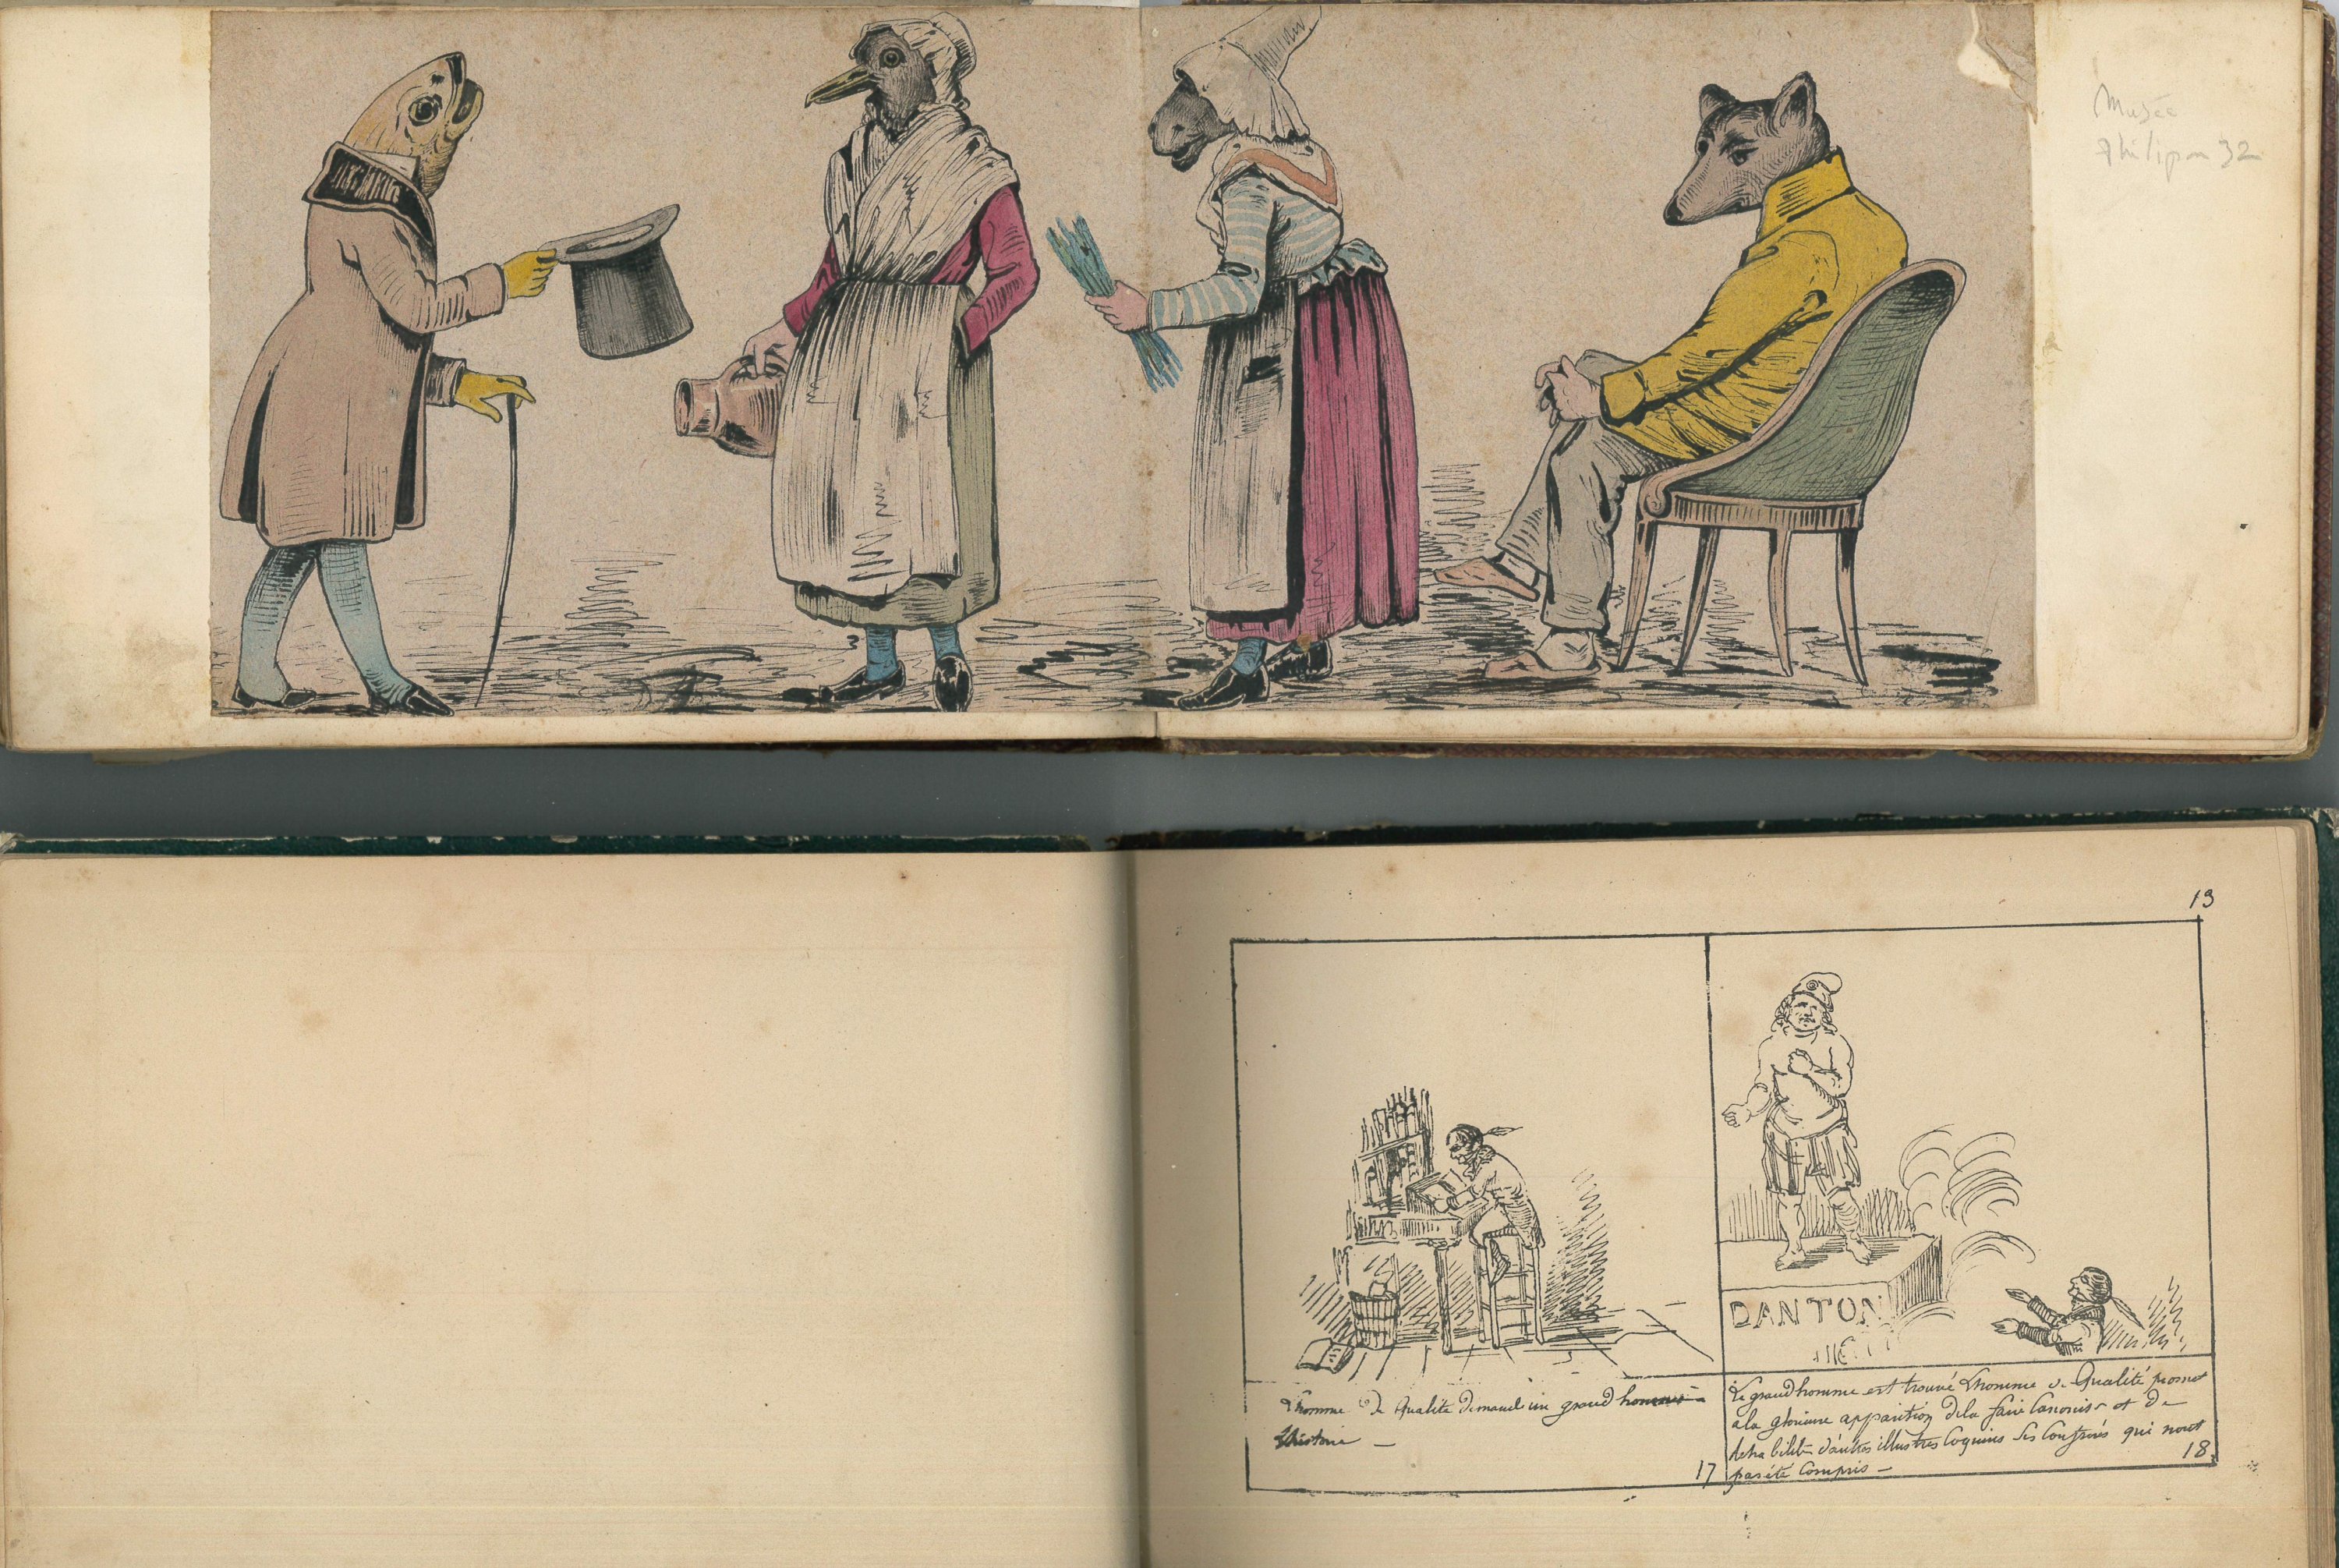 Musée
Philipon 32
13
L'homme de Qualité demand un grand homme a
l'histoire —
17
DANTON
Le grand homme est trouvé L'homme de Qualité promet
a la glorieuse apparition de la faire Canoniser et de
d'autres illustres Coquins Ses Confrères qui n'ont
18
pas été Compris —